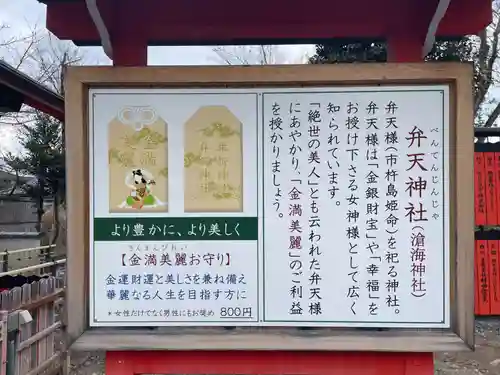 弁天神社（滄海神社）
べんてんじんじゃ
弁天様（市杵島姫命）を祀る神社。
弁天様は「金銀財宝」や「幸福」を
お授け下さる女神様として広く
知られています。
「絶世の美人」とも云われた弁天様
にあやかり、「金満美麗」のご利益
を授かりましょう。
金満
美麗
弁天神社
より豊かに、より美しく
きんまんびれい
【金満美麗お守り】
金運財運と美しさを兼ね備え
華麗なる人生を目指す方に
＊女性だけでなく男性にもお奨め 800円